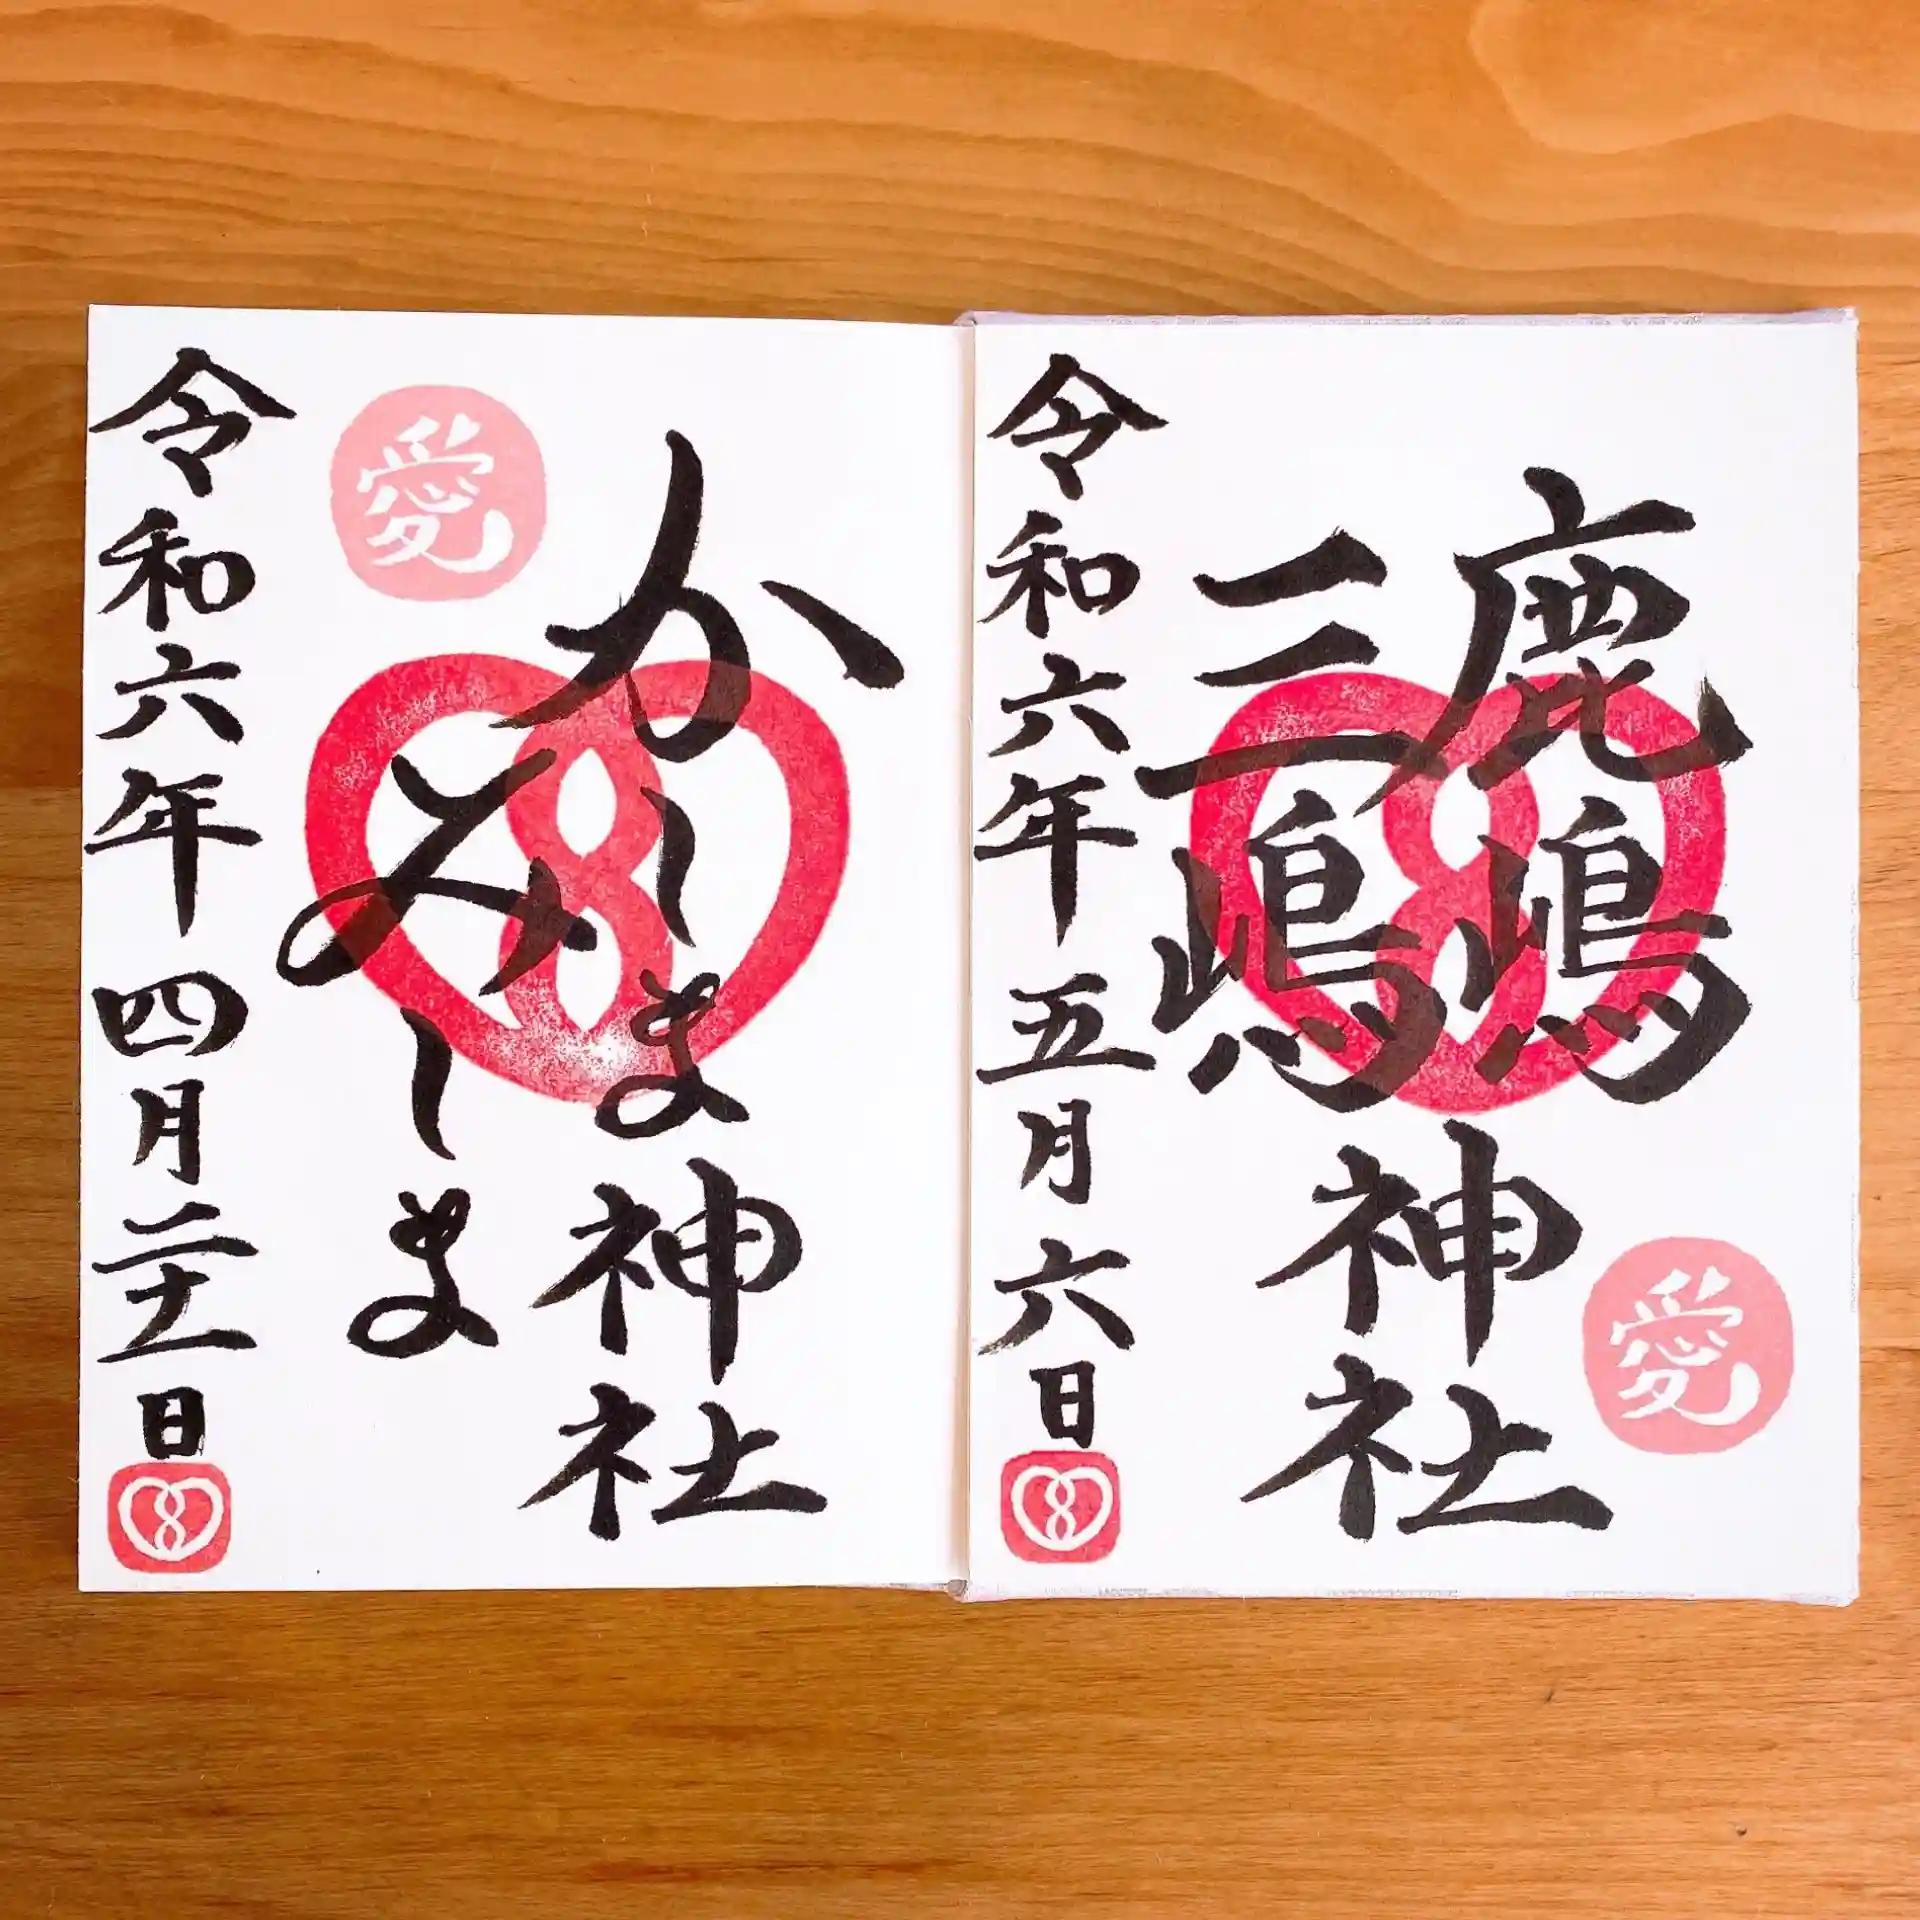 鹿嶋
三嶋
神社
愛
令和六年五月六日
かしま神社
みしま
愛
令和六年四月二十一日